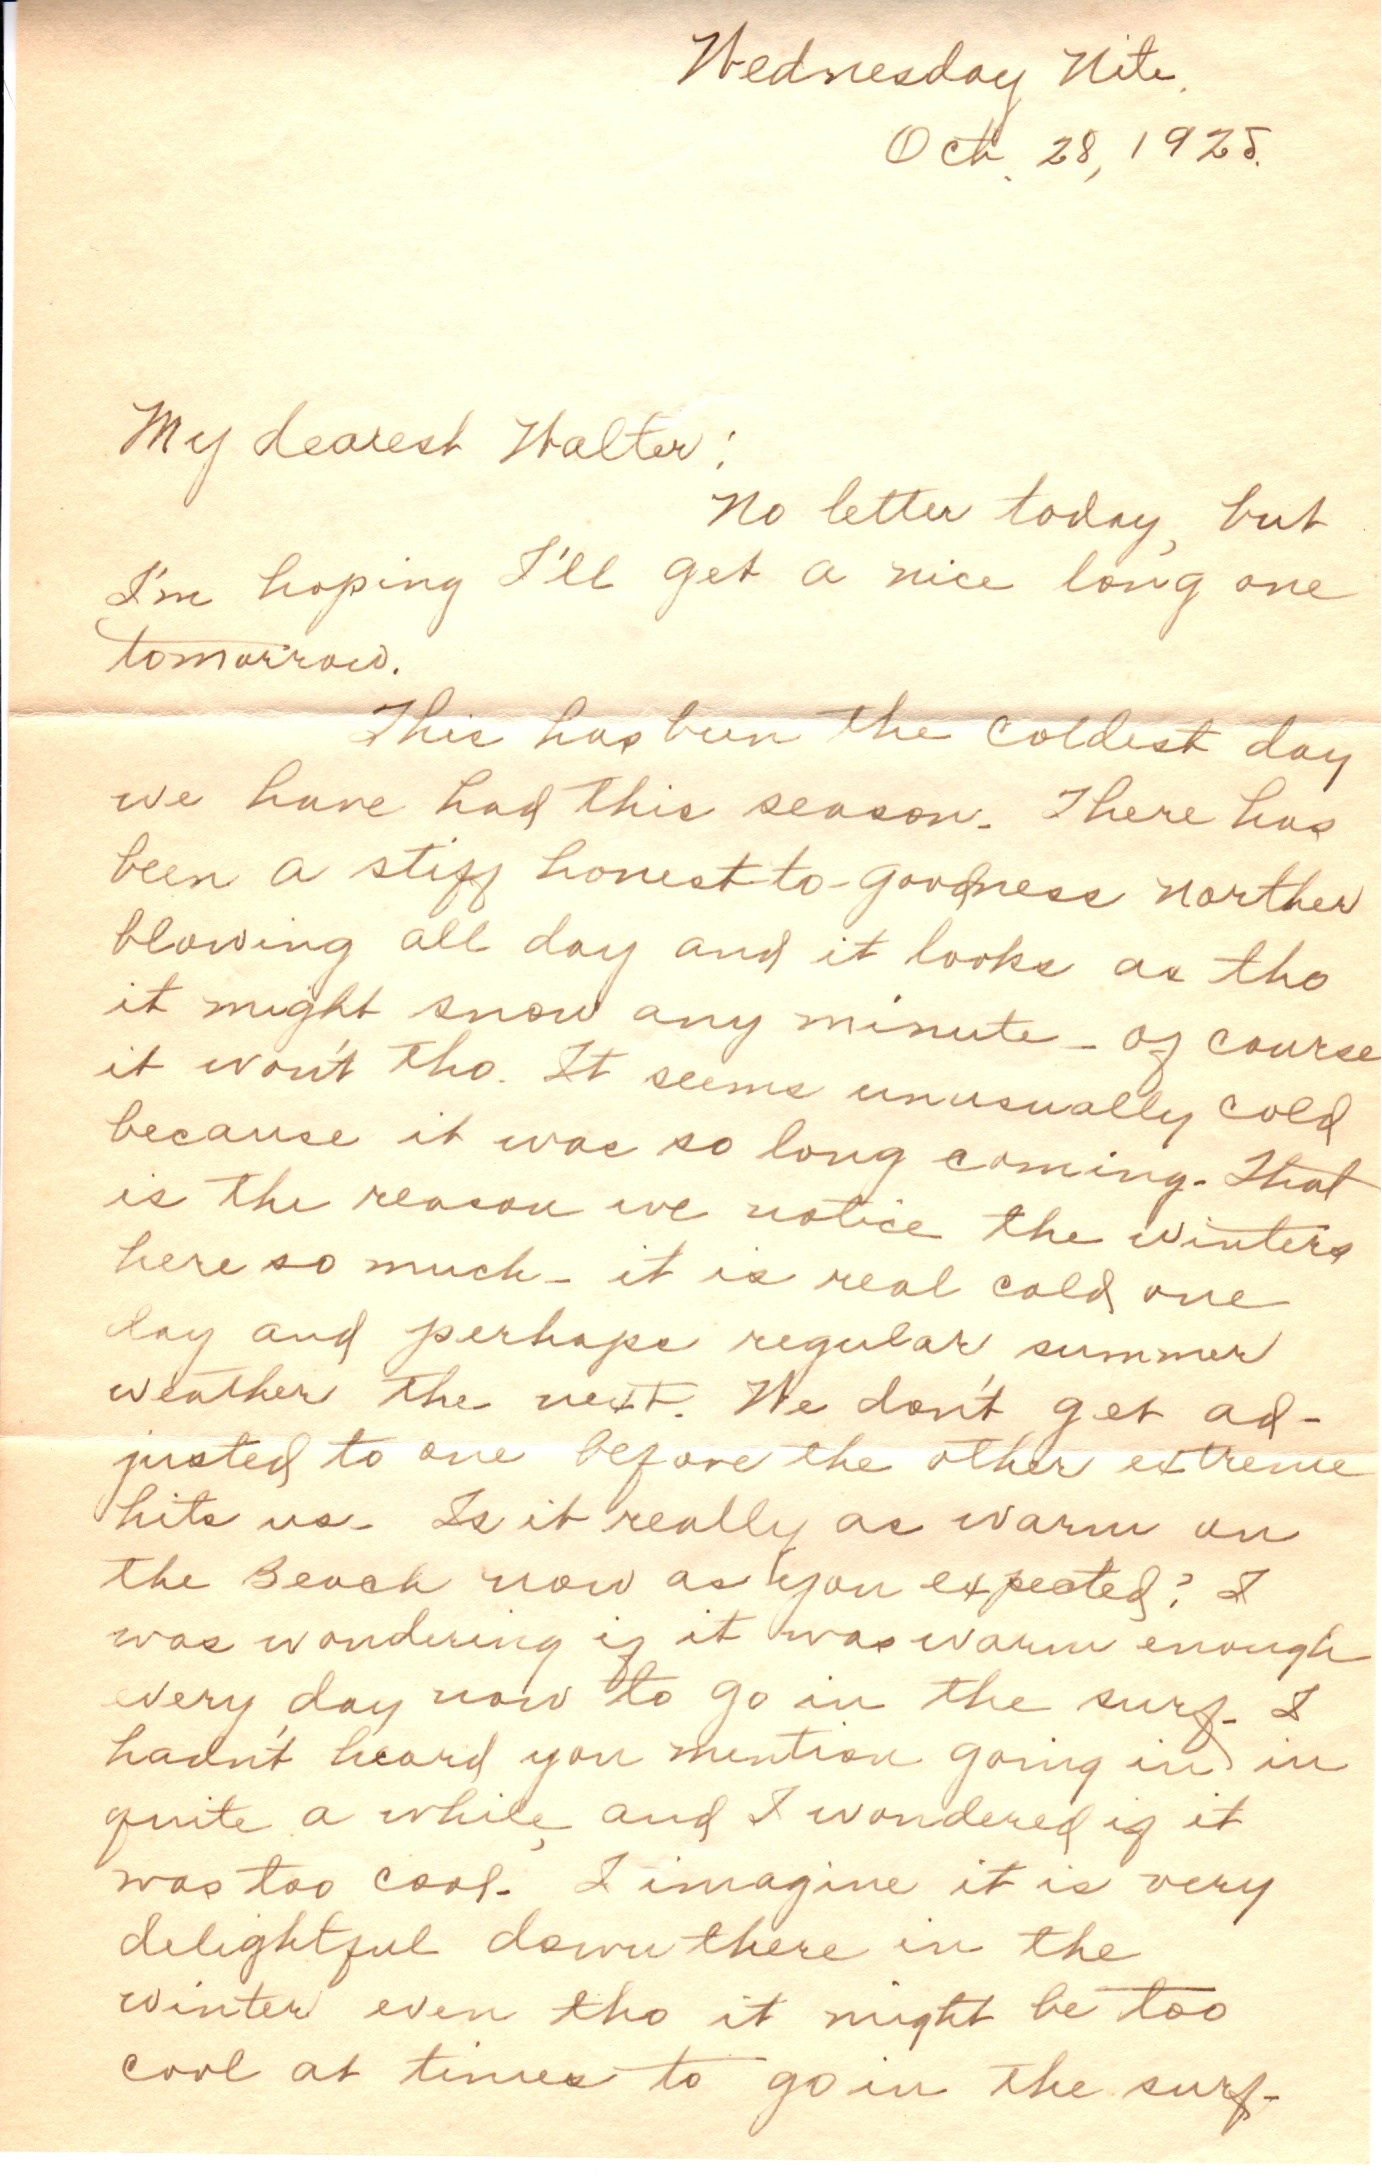 Wednesday Nite.
Oct. 28, 1925.
My dearest Walter:
No letter today, but
I'm hoping I'll get a nice long one
tomorrow.
This has been the coldest day
we have had this season. There has
been a stiff honest-to-goodness norther
blowing all day and it looks as tho
it might snow any minute - of course
it won't tho. It seems unusually cold
because it was so long coming. That
is the reason we notice the winters
here so much - it is real cold one
day and perhaps regular summer
weather the next. We don't get ad-
justed to one before the other extreme
hits us. Is it really as warm on
the Beach now as you expected? I
was wondering if it was warm enough
every day now to go in the surf. I
hadn't heard you mention going in in
quite a while, and I wondered if it
was too cool. I imagine it is very
delightful down there in the
winter even tho it might be too
cool at times to go in the surf.